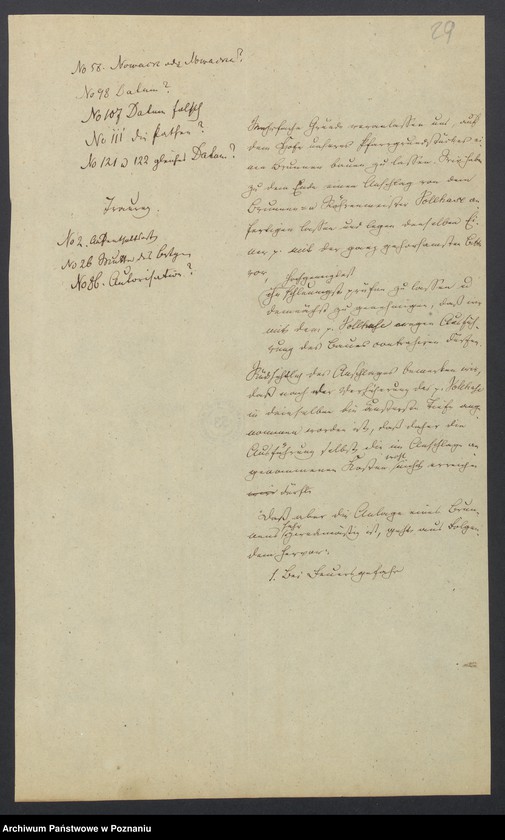 29
No 58. Nowack oder Nowacka?
No 98 Datum?
No 107 Datum falsch
No 111 die Pathen?
No 121 u 122 gleiches Datum?
Trauung.
No 2. Aufenthaltsort
No 26 Mutter des Bräutgms
No 86. Autorisation?
Mehrfache Gründe veranlassen uns, auf
dem Hofe unseres Pfarrgrundstückes ei
nen Brunnen bauen zu lassen. Wir haben
zu dem Ende einen Anschlag von dem
Brunnen Röhrenmeister Vollhase an
fertigen lassen und legen denselben Ei
ner p. mit der ganz gehorsamsten Bitte
vor,
schleunigst prüfen zu lassen u
demnächst zu genehmigen, daß wir
mit dem p. Vollhase wegen Ausfüh-
rung des Baues contrahiren dürfen.
Rücksichtlich des Anschlages bemerken wir,
daß nach der Versicherung des p. Vollhase
in demselben die äußerste Tiefe ange
nommen worden ist, daß daher die
Ausführung selbst die im Anschlage an
genommenen Kosten nicht erreichen
dürfte
Daß aber die Anlage eines Brun
nens sehr zweckmäßig ist, geht aus Folgen
dem hervor:
1. Bei Feuersgefahr
Archiwum Państwowe w Poznaniu